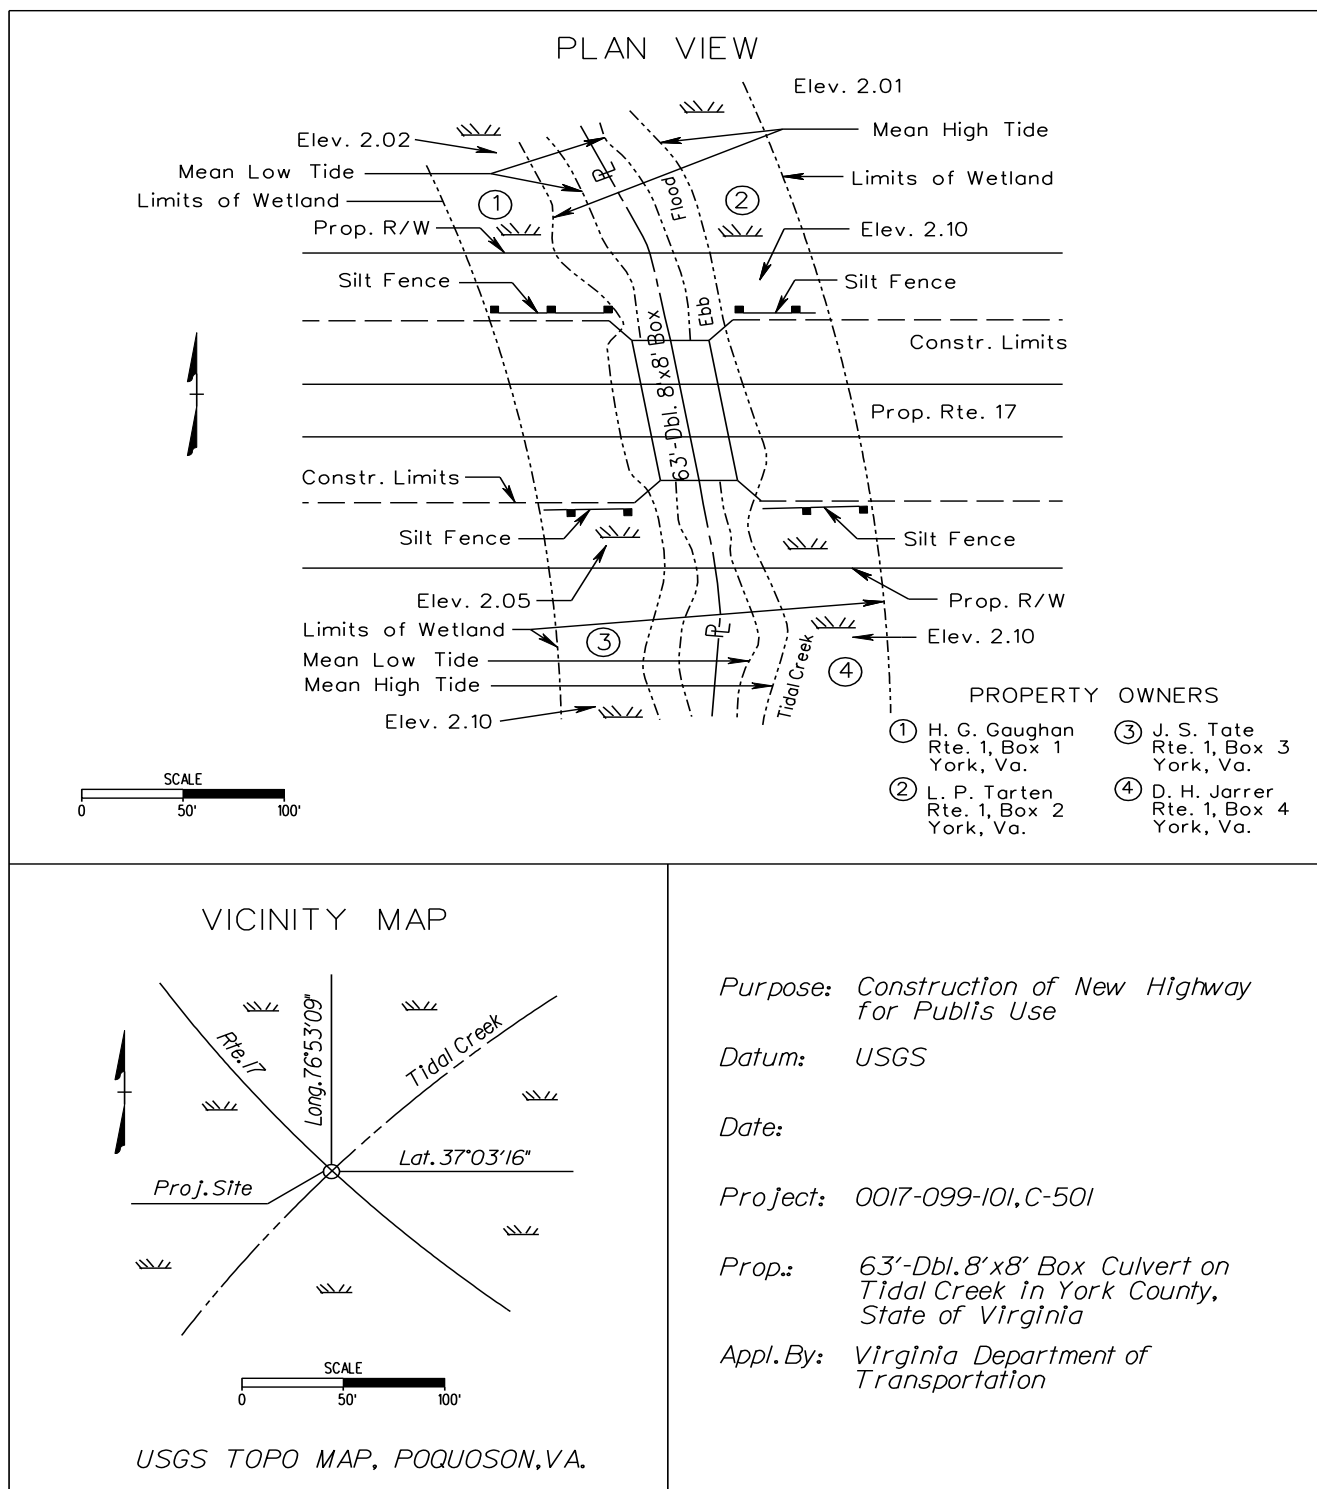 PLAN VIEW
Elev. 2.01
Elev. 2.02
Mean High Tide
Mean Low Tide
Limits of Wetland
Limits of Wetland
PL
Flood
1
2
Prop. R/W
Elev. 2.10
Silt Fence
Silt Fence
Ebb
Constr. Limits
63'-Dbl. 8'x8' Box
Prop. Rte. 17
Constr. Limits
Silt Fence
Silt Fence
Elev. 2.05
Prop. R/W
Limits of Wetland
3
PL
Elev. 2.10
Mean Low Tide
Tidal Creek
4
Mean High Tide
Elev. 2.10
PROPERTY OWNERS
1 H. G. Gaughan
Rte. 1, Box 1
York, Va.
2 L. P. Tarten
Rte. 1, Box 2
York, Va.
3 J. S. Tate
Rte. 1, Box 3
York, Va.
4 D. H. Jarrer
Rte. 1, Box 4
York, Va.
SCALE
0 50' 100'
VICINITY MAP
Rte. 17
Long. 76°53'09"
Tidal Creek
Lat. 37°03'16"
Proj. Site
SCALE
0 50' 100'
USGS TOPO MAP, POQUOSON, VA.
Purpose: Construction of New Highway
for Publis Use
Datum: USGS
Date:
Project: 0017-099-101, C-501
Prop.: 63'-Dbl. 8'x8' Box Culvert on
Tidal Creek in York County,
State of Virginia
Appl. By: Virginia Department of
Transportation